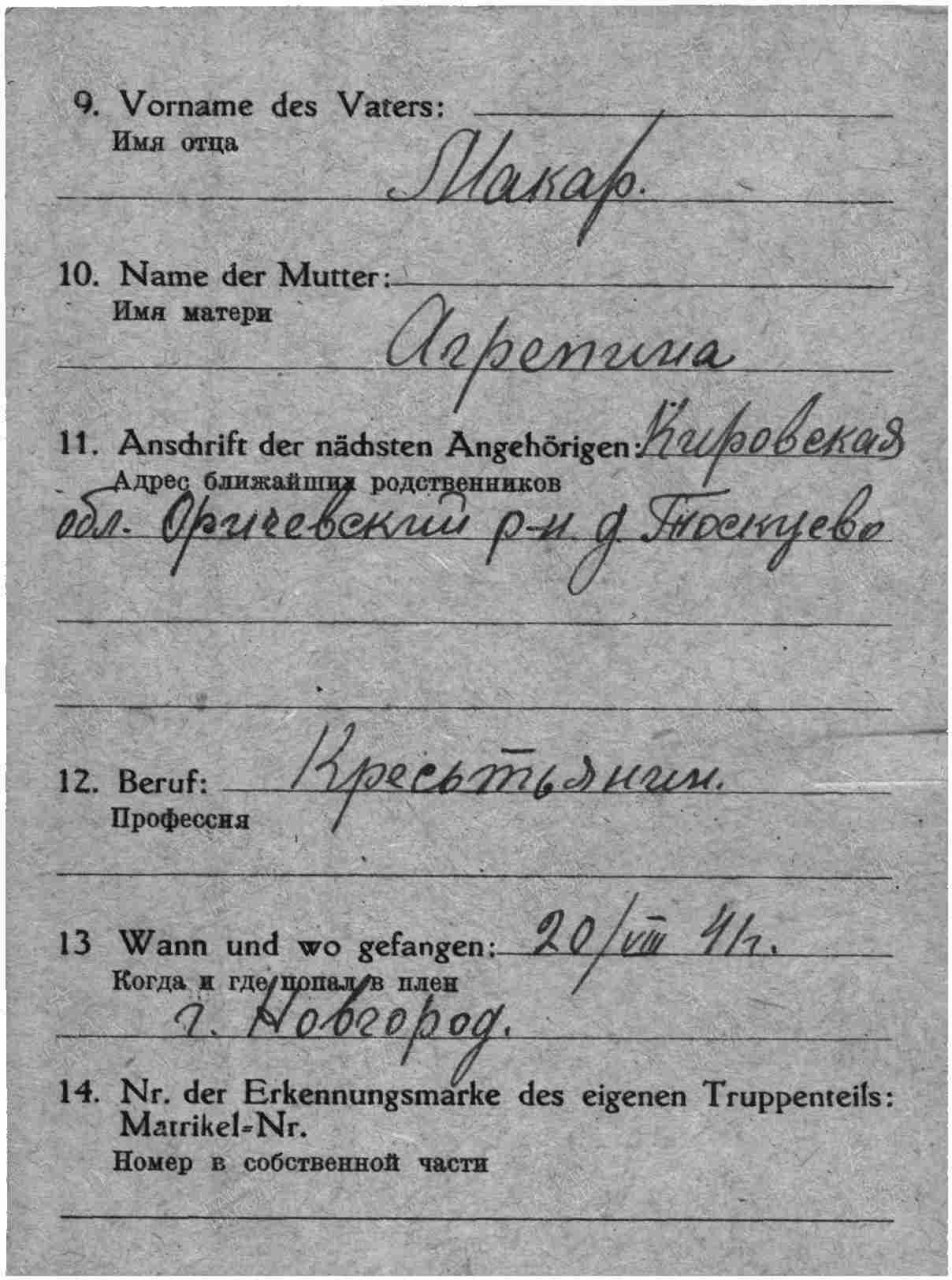 9. Vorname des Vaters:
Имя отца
Макар.
10. Name der Mutter:
Имя матери
Агрепина
11. Anschrift der nächsten Angehörigen: Кировская
Адрес ближайших родственников
обл. Оричевский р-н д. Тоскуево
12. Beruf: Кресьтьянин.
Профессия
13 Wann und wo gefangen: 20/VIII 41г.
Когда и где попал в плен
г. Новгород.
14. Nr. der Erkennungsmarke des eigenen Truppenteils:
Matrikel-Nr.
Номер в собственной части